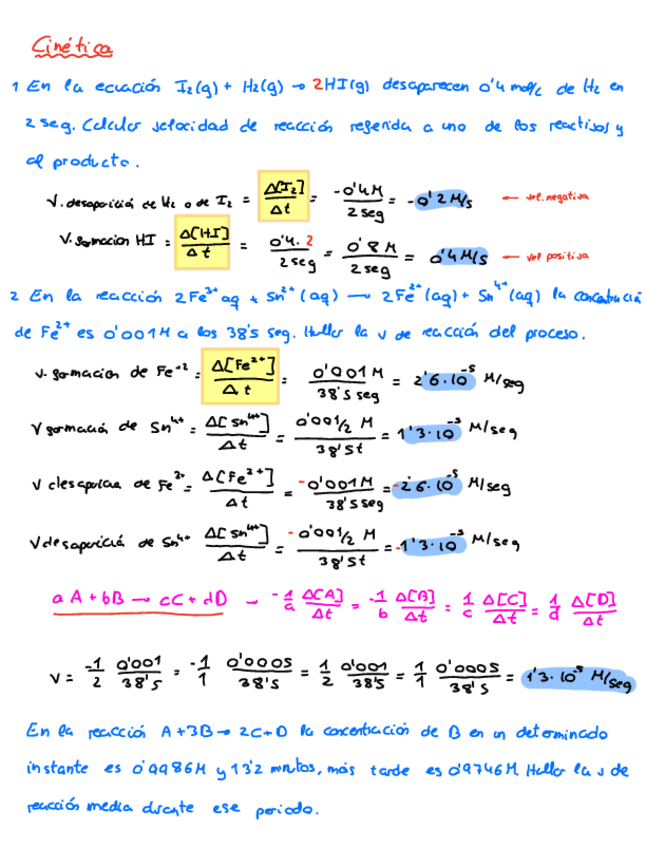 Cinética
1 En la ecuación I₂(g) + H₂(g) → 2HI(g) desaparecen 0'4 mol/L de H₂ en
2 seg. Calcular velocidad de reacción referida a uno de los reactivos y
al producto.
V. desaparición de H₂ o de I₂ = Δ[I₂]/Δt = -0'4M/2 seg = -0'2 M/s ← vel. negativa
V. formacion HI = Δ[HI]/Δt = 0'4·2/2 seg = 0'8 M/2 seg = 0'4 M/s ← vel positiva
2 En la reacción 2Fe³⁺aq + Sn²⁺(aq) → 2Fe²⁺(aq) + Sn⁴⁺(aq) la
de Fe²⁺ es 0'001M a los 38'5 seg. Hallar la v de reacción del proceso.
v. formacion de Fe⁺² = Δ[Fe²⁺]/Δt = 0'001 M/38'5 seg = 2'6·10⁻⁵ M/seg
V formación de Sn⁴⁺ = Δ[Sn⁴⁺]/Δt = 0'001/2 M/38'5t = 1'3·10⁻⁵ M/seg
V de Fe²⁺ = Δ[Fe²⁺]/Δt = -0'001M/38'5 seg = -2'6·10⁻⁵ M/seg
V desaparición de Sn⁴⁺ Δ[Sn⁴⁺]/Δt = -0'001/2 M/38'5t = -1'3·10⁻⁵ M/seg
aA + bB → cC + dD → -1/a Δ[A]/Δt = -1/b Δ[B]/Δt = 1/c Δ[C]/Δt = 1/d Δ[D]/Δt
v = -1/2 0'001/38'5 = -1/1 0'0005/38'5 = 1/2 0'001/38'5 = 1/1 0'0005/38'5 = 1'3·10⁻⁵ M/seg
En la reacción A+3B → 2C+D la concentración de B en un determinado
instante es 0'9986M y 13'2 minutos, más tarde es 0'9746M. Hallar la v de
reacción media durante ese periodo.